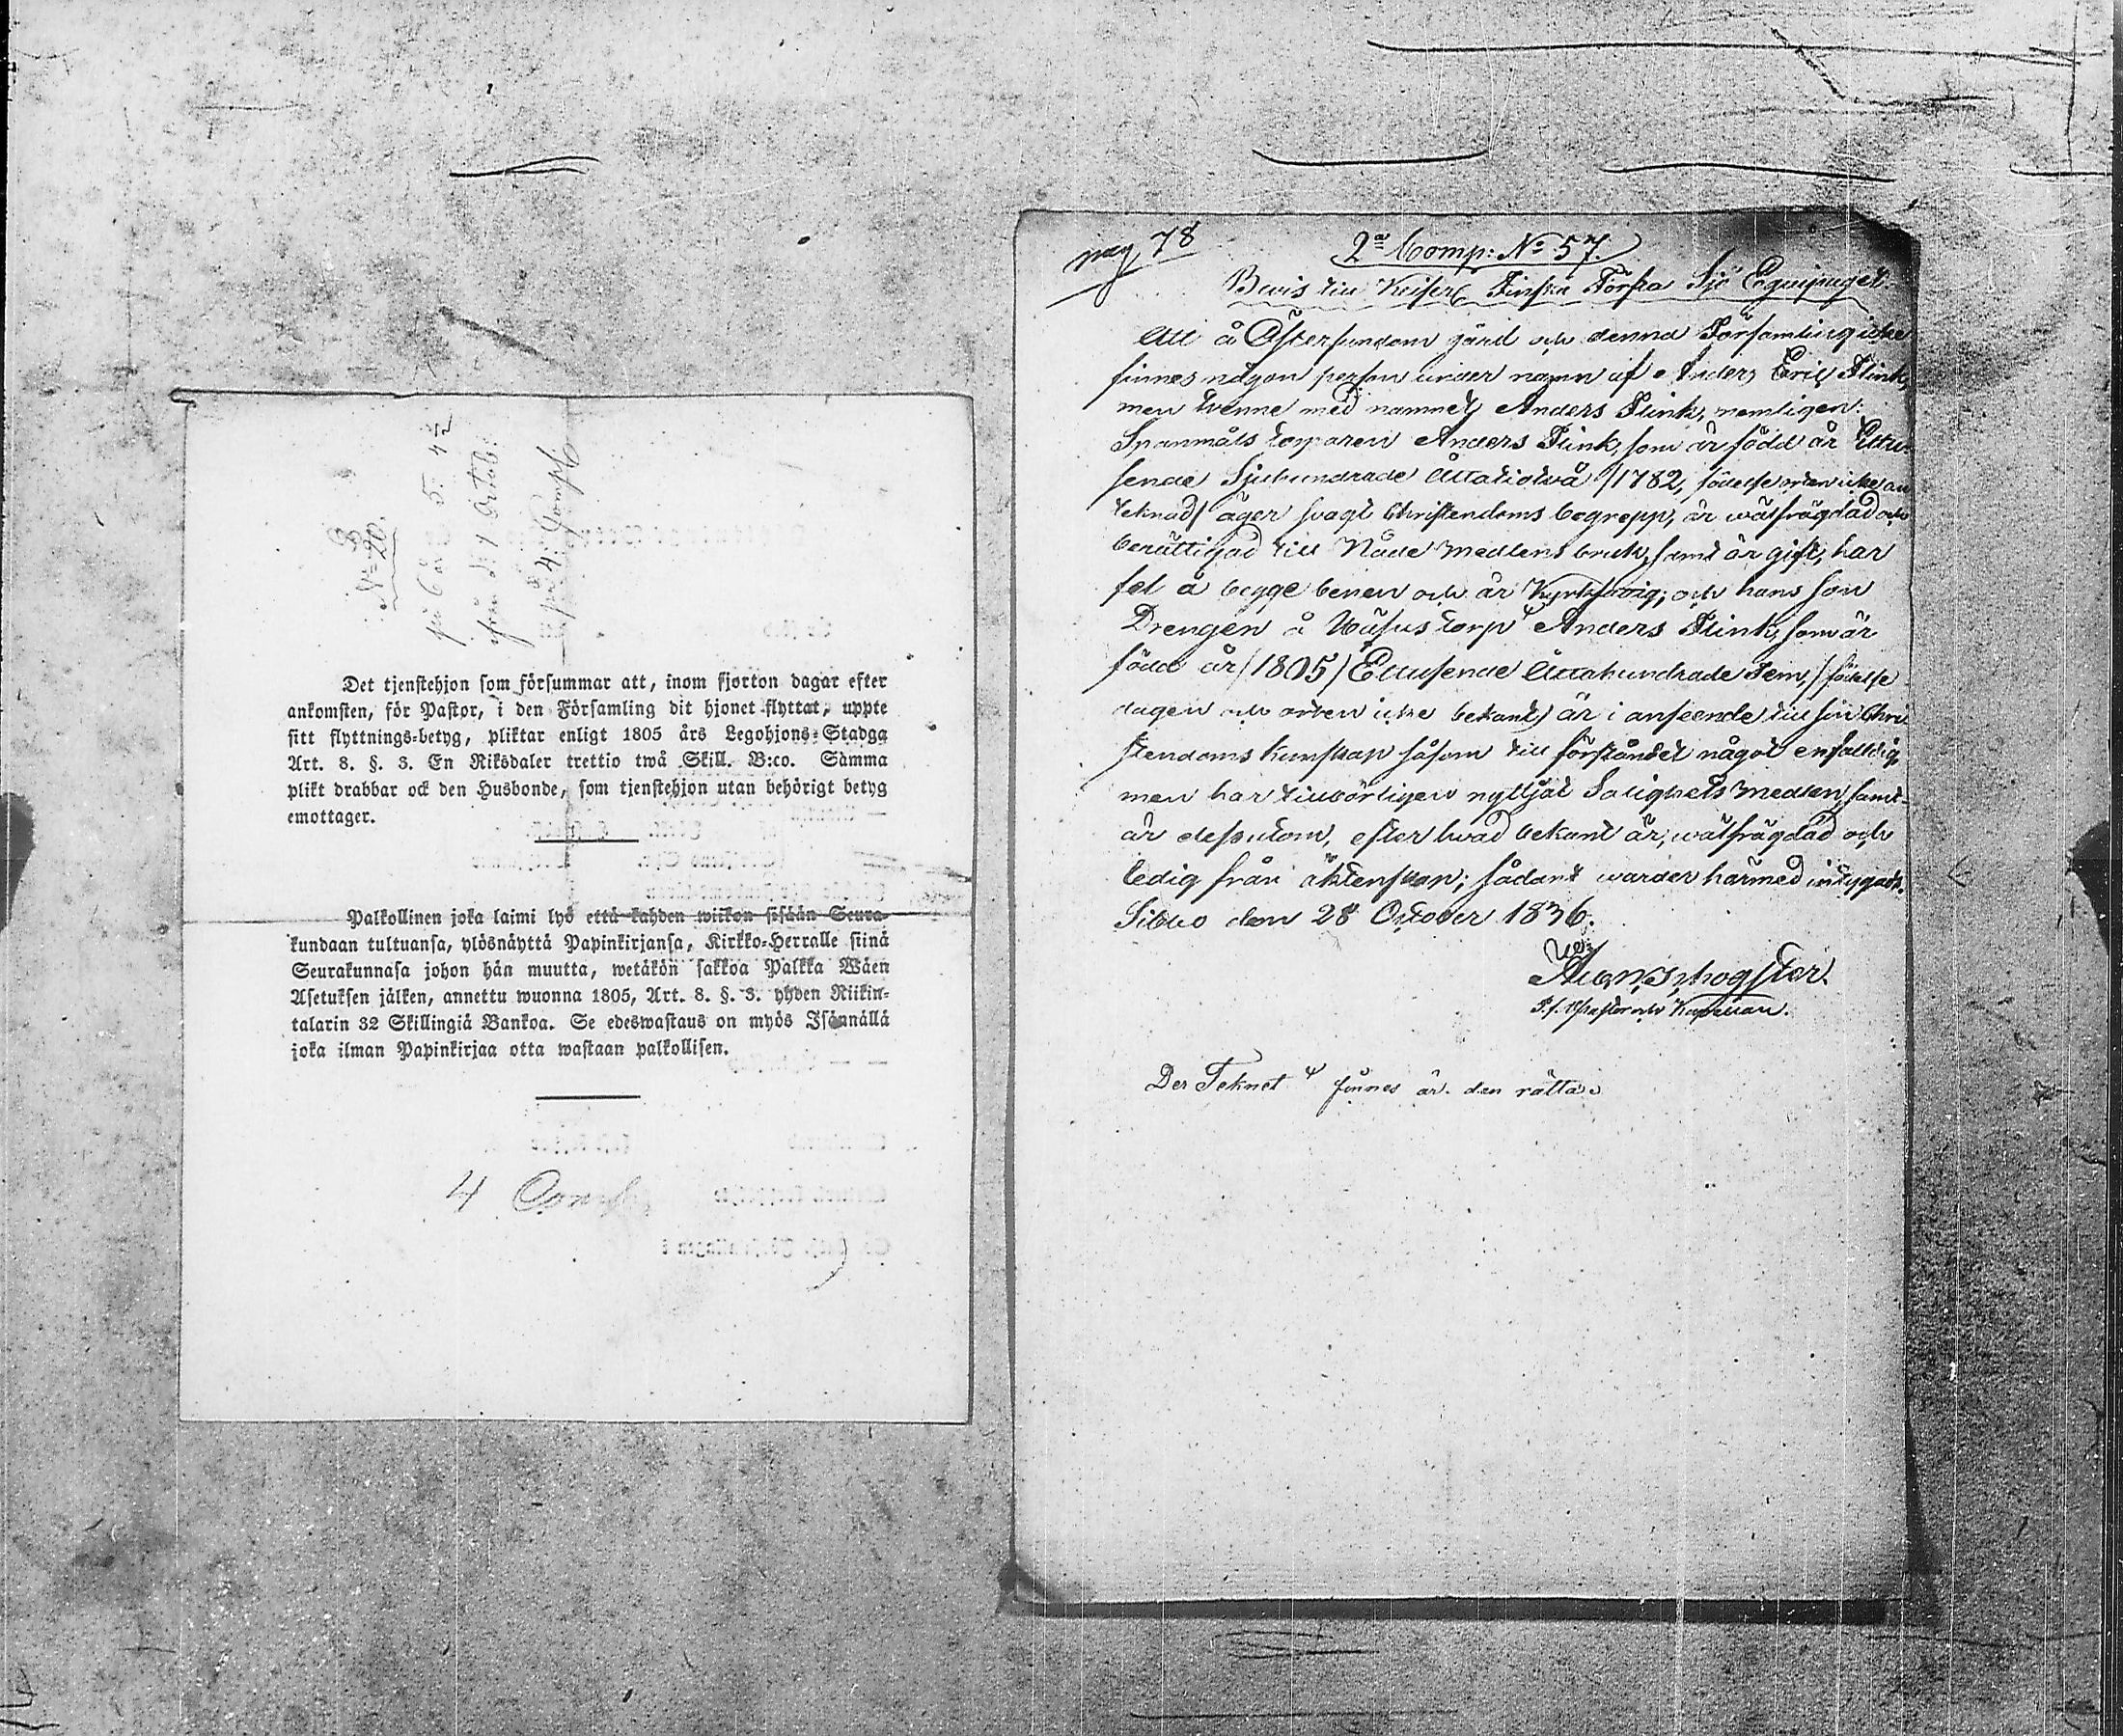 B
N=20.
på 6 år 5. 4½
ifrån d. 1 Octob:
på 4: Comp
Det tjenstehjon som försummar att, inom fjorton dagar efter
ankomsten, för Pastor, i den Församling dit hjonet flyttat, uppte
sitt flyttnings-betyg, pliktar enligt 1805 års Legohjons-Stadga
Art. 8. §. 3. En Riksdaler trettio twå Skill. B:co. Samma
plikt drabbar ock den Husbonde, som tjenstehjon utan behörigt betyg
emottager.
Palkollinen joka laimi lyö että kahden wiikon sisään Seura-
kundaan tultuansa, ylösnäyttä Papinkirjansa, Kirkko-Herralle siinä
Seurakunnasa johon hän muutta, wetäkön sakkoa Palkka Wäen
Asetuksen jälken, annettu wuonna 1805, Art. 8. §. 3. yhden Riikin-
talarin 32 Skillingiä Bankoa. Se edeswastaus on myös Isännällä
joka ilman Papinkirjaa otta wastaan palkollisen.
4 Comp
pag 78
2a Comp: No 57.
Bewis till Keiserl Finska Första Sjö Equipaget.
Att å Östersundom gård och denna Församling icke
finnes någon person under namn af Anders Eric Flink,
men twenne med namnet Anders Flink, nemligen:
Spanmåls torparen Anders Flink, som är född år Ettu-
sende Sjuhundrade Åttatiotwå /1782, födelse orten icke an
teknad/ äger swagt Christendoms begrepp, är wälfrägdad och
berättigad till Nåde medlens bruk, samt är gift, har
fel å begge benen och är Kyrkswoig; och hans son
Drengen å Uusus torp Anders Flink, som är
född år /1805/ Ettusende Åttahundrade Fem, /födelse
dagen och orten icke bekant/ är i anseende till sin Chri
stendoms kunskap såsom till förståndet något enfaldig,
men har tillbörligen nyttjat Salighets medlen, samt
är dessutom, efter hwad bekant är, wälfrägdad och
ledig från äktenskap; sådant warder härmed intygadt.
Sibbo den 28 October 1836.
T. f. Pastor och Kapellan.
Der Teknet 4 finnes är den rätta